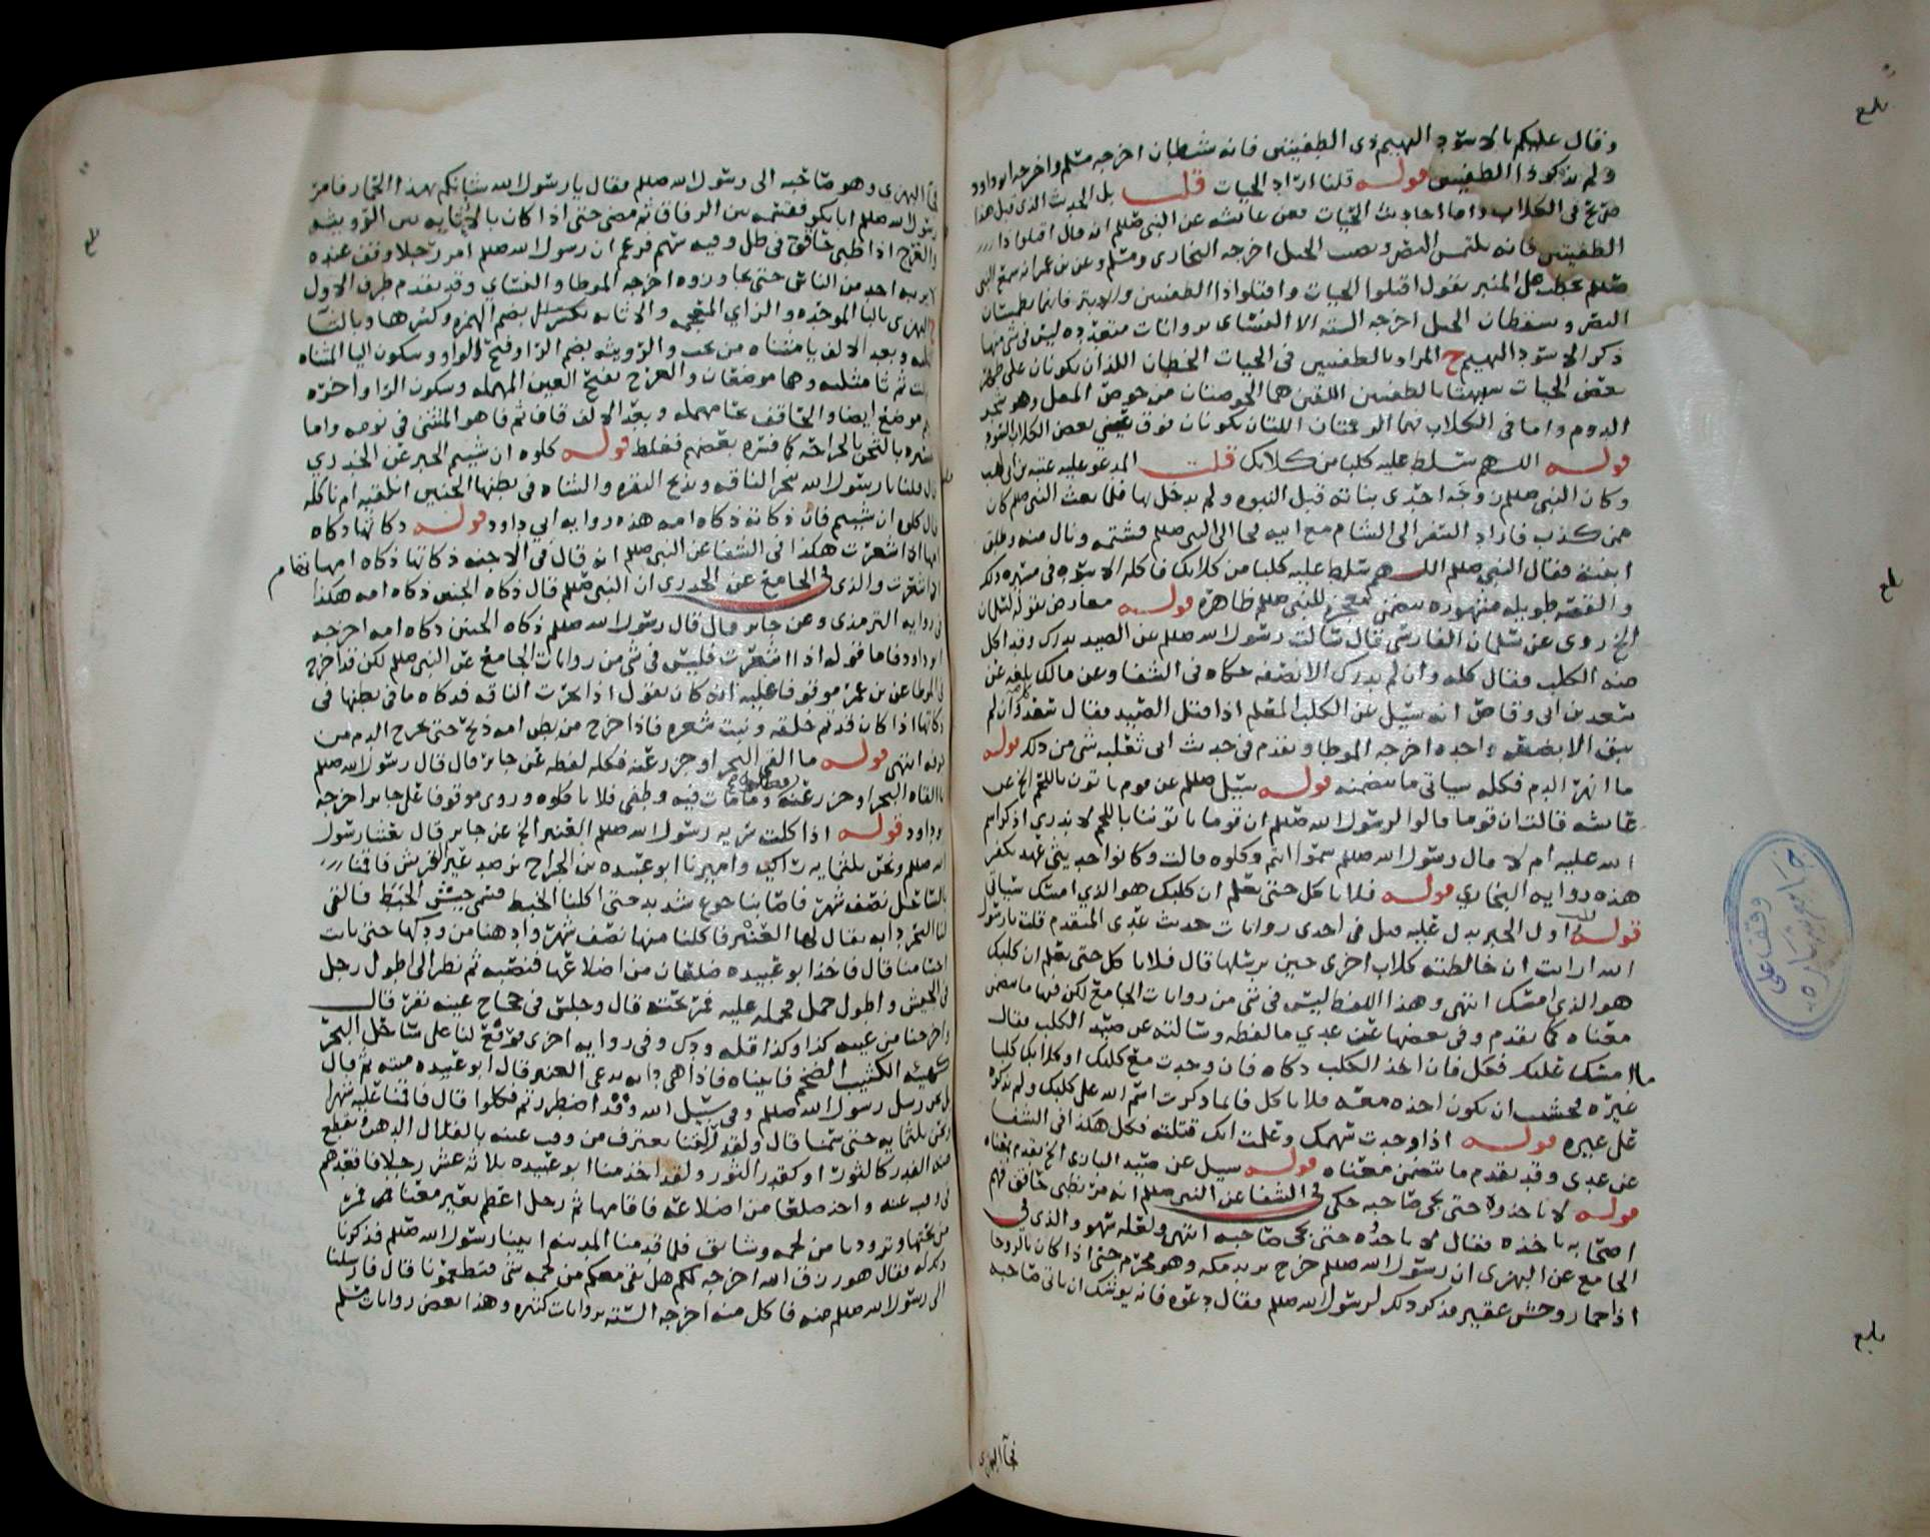 وقال عليكم بالاسود البهيم ذي الطفيتين فانه شيطان اخرجه مسلم واخرجه ابو داود
ولم يذكر ذا الطفيتين قوله قلنا اراد الحيات قلت بل الحديث الذي قبل هذا
صريح في الكلاب واما احاديث الحيات فعن عائشه عن النبي صلعم انه قال اقتلوا ذا
الطفيتين فانه يلتمس البصر ويصيب الحبل اخرجه البخاري ومسلم وعن بن عمر انه سمع النبي
صلعم يخطب على المنبر يقول اقتلوا الحيات واقتلوا ذا الطفيتين والابتر فانهما يطمسان
البصر ويسقطان الحبل اخرجه السته الا النسائ بروايات متعدده ليس في شي منها
ذكر الاسود البهيم ح المراد بالطفيتين في الحيات الخطان اللذان يكونان على ظهر
بعض الحيات شبهتا بالطفيتين اللتين هما الخوصتان من خوص المقل وهو شجر
الدوم واما في الكلاب فهما الوقعتان اللتان يكونان فوق عيني بعض الكلاب السود
قوله اللهم سلط عليه كلبا من كلابك قلت المدعو عليه عتبه بن ابي لهب
وكان النبي صلعم زوجه احدى بناته قبل النبوه ولم يدخل بها فلما بعث النبي صلعم كان
ممن كذب فاراد السفر الى الشام مع ابيه فجا الى النبي صلعم فشتمه ونال منه وطلق
ابنته فقال النبي صلعم اللهم سلط عليه كلبا من كلابك فاكله الاسد في مسيره ذلك
والقصه طويله مشهوره تتضمن معجزه للنبي صلعم ظاهرة قوله معارض بقوله لسلمان
الخ روي عن سلمان الفارسي قال سالت رسول الله صلعم عن الصيد يدرك وقد اكل
منه الكلب فقال كله وان لم يدرك الا نصفه حكاه في الشفا وعن مالك بلغه عن
سعد بن ابي وقاص انه سئل عن الكلب المعلم اذا قتل الصيد فقال سعد كل وان لم
يبق الا بضعه واحده اخرجه الموطا وتقدم في حديث ابي ثعلبه شي من ذلك قوله
ما انهر الدم فكله سياتي ما يتضمنه قوله سئل صلعم عن قوم ياتون باللحم الخ عن
عائشه قالت ان قوما قالوا لرسول الله صلعم ان قوما ياتوننا باللحم لا ندري اذكر اسم
الله عليه ام لا قال رسول الله صلعم سموا انتم وكلوه قالت وكانوا حديثي عهد بكفر
هذه روايه البخاري قوله فلا ياكل حتى يعلم ان كلبك هو الذي امسك سياتي
قوله اول الخبر يدل عليه قيل في احدى روايات حديث عدي المتقدم قلت يا رسول
الله ارايت ان خالطته كلاب اخرى حين يرسلها قال فلا ياكل حتى يعلم ان كلبك
هو الذي امسك انتهى وهذا اللفظ ليس في شي من روايات الجامع لكن فيها ما يتضمن
معناه كما تقدم وفي بعضها عن عدي ما لفظه وسالته عن صيد الكلب فقال
ما امسك عليك فكل فان اخذ الكلب ذكاه فان وجدت مع كلبك او كلابك كلبا
غيره فخشيت ان يكون اخذه معه فلا ياكل فانما ذكرت اسم الله على كلبك ولم تذكره
على غيره قوله اذا وجدت سهمك وعلمت انك قتلته فكل هكذا في الشفا
عن عدي وقد تقدم ما يتضمن معناه قوله سيل عن صيد البازي الخ تقدم معناه
قوله لا تاخذوه حتى يجي صاحبه حكى في الشفا عن النبي صلعم انه مر بظبي حاقف فهم
اصحابه باخذه فقال لا ياخذه حتى يجي صاحبه انتهى ولعله سهو والذي في
الجامع عن البهزي ان رسول الله صلعم خرج يريد مكه وهو محرم حتى اذا كان بالروحا
اذا حمار وحش عقير فذكر ذلك لرسول الله صلعم فقال دعوه فانه يوشك ان ياتي صاحبه
فجآ البهزي
بلغ
بلغ
بلغ
وقف على
فجآ البهزي وهو صاحبه الى رسول الله صلعم فقال يا رسول الله شانكم بهذا الحمار فامر
رسول الله صلعم ابا بكر فقسمه بين الرفاق ثم مضى حتى اذا كان بالاثايه بين الرويثه
والعرج اذا ظبي حاقف في ظل وفيه سهم فزعم ان رسول الله صلعم امر رجلا وقف عنده
لا يريبه احد من الناس حتى يجاوزوه اخرجه الموطا والنسائي وقد تقدم طرف الاول
ح البهزي بالبا الموحده والزاي المعجمه والاثايه بضم الهمزه وكسرها وبالثا
المثلثه وبعد الالف يا مثناه من تحت والرويثه بضم الرا وفتح الواو وسكون اليا المثناه
تحت ثم ثا مثلثه وهما موضعان والعرج بفتح العين المهمله وسكون الرا واخره
جيم موضع ايضا والحاقف بحا مهمله وبعد الالف قاف ثم فا هو المنثني في نومه واما
تفسيره بالثخن بالجراحه كما فسره بعضهم فغلط قوله كلوه ان شيتم الخبر عن الخدري
قال قلنا يا رسول الله ننحر الناقه ونذبح البقره والشاه في بطنها الجنين انلقيه ام ناكله
قال كلوه ان شيتم فان ذكاته ذكاه امه هذه روايه ابي داود قوله ذكاتها ذكاه
امها اذا اشعرت هكذا في الشفا عن النبي صلعم انه قال في الاجنه ذكاتها ذكاه امهاتها م
اذا اشعرت والذي في الجامع عن الخدري ان النبي صلعم قال ذكاه الجنين ذكاه امه هكذا
في روايه الترمذي وعن جابر قال قال رسول الله صلعم ذكاه الجنين ذكاه امه اخرجه
ابو داود فاما قوله اذا اشعرت فليس في شي من روايات الجامع عن النبي صلعم لكن قد اخرج
في الموطا عن بن عمر موقوفا عليه انه كان يقول اذا نحرت الناقه فذكاه ما في بطنها في
ذكاتها اذا كان قد تم خلقه ونبت شعره فاذا خرج من بطن امه ذبح حتى يخرج الدم من
جوفه انتهى قوله ما القى البحر او جزر عنه فكله لفظه عن جابر قال قال رسول الله صلعم
ما القاه البحر او جزر عنه فكلوه وما مات فيه وطفى فلا تاكلوه وروي موقوفا على جابر اخرجه
ابو داود قوله اذا كلت سريه رسول الله صلعم العنبر الخ عن جابر قال بعثنا رسول
الله صلعم ونحن ثلثمايه راكب واميرنا ابو عبيده بن الجراح نرصد عير القريش فاقمنا
بالساحل نصف شهر فاصابنا جوع شديد حتى اكلنا الخبط فسمي جيش الخبط فالقى
لنا البحر دابه يقال لها العنبر فاكلنا منها نصف شهر وادهنا من ودكها حتى ثابت
اجسامنا قال فاخذ ابو عبيده ضلعان من اضلاعها فنصبه ثم نظر الى اطول رجل
في الجيش واطول جمل فحمله عليه فمر تحته قال وجلس في حجاج عينه نفر قال
واخرجنا من عينه كذا وكذا قله ودك وفي روايه اخرى فوقع لنا على ساحل البحر
كهيئه الكثيب الضخم فاتيناه فاذا هي دابه تدعى العنبر قال ابو عبيده ميته ثم قال
بل نحن رسل رسول الله صلعم وفي سبيل الله وقد اضطررتم فكلوا قال فاقمنا عليه شهرا
ونحن ثلثمايه حتى سمنا قال ولقد رايتنا نغترف من وقب عينه بالقلال الدهن ونقطع
منه الفدر كالثور او كقدر الثور ولقد اخذ منا ابو عبيده ثلاثه عشر رجلا فاقعدهم
في وقب عينه واخذ ضلعا من اضلاعه فاقامها ثم رحل اعظم بعير معنا فمر
من تحتها وتزودنا من لحمه وشايق فلما قدمنا المدينه اتينا رسول الله صلعم فذكرنا
ذلك له فقال هو رزق الله اخرجه لكم هل بقي معكم من لحمه شي فتطعمونا قال فارسلنا
الى رسول الله صلعم منه فاكل منه اخرجه السته بروايات كثيره وهذا بعض روايات مسلم
بلغ